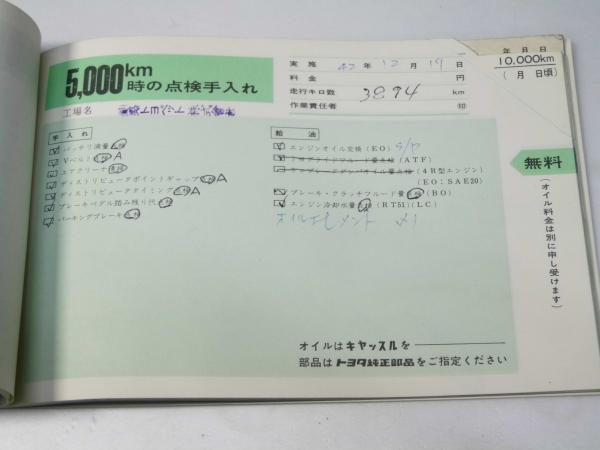 5,000km
時の点検手入れ
工場名
実施 42年12月19日
料金 円
走行キロ数 3894 km
作業責任者 印
年 月 日
10,000km
(月 日頃)
手入れ
バッテリ液量点検
Vベルト点検 A
エアクリーナ清掃
ディストリビュータポイントギャップ点検 A
ディストリビュータタイミング点検 A
ブレーキペダル踏み残り代点検
パーキングブレーキ点検
給油
エンジンオイル交換(EO)
(ATF)
(4R型エンジン)
(EO:SAE20)
ブレーキ・クラッチフルード量点検(BO)
エンジン冷却水量点検(RT51)(LC)
無料
(オイル料金は別に申し受けます)
オイルはキヤッスルを
部品はトヨタ純正部品をご指定ください